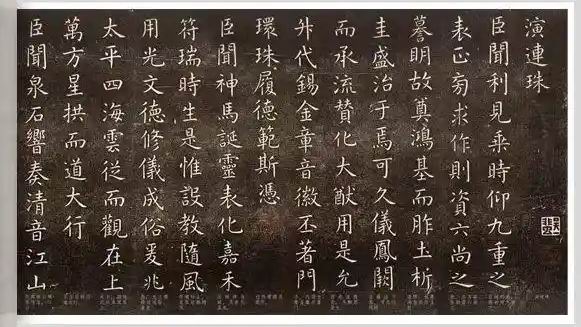 演連珠
臣聞利見乘時仰九重之
表正旁求作則資六尚之
謩明故奠鴻基而胙土析
圭盛治于焉可久儀鳳闕
而承流贊化大猷用是允
升代錫金章音徽丕著門
環珠履德範斯憑
臣聞神馬誕靈表化嘉禾
符瑞時生是惟設教隨風
用光文德修儀成俗爰兆
太平四海雲從而觀在上
萬方星拱而道大行
臣聞泉石響奏清音江山